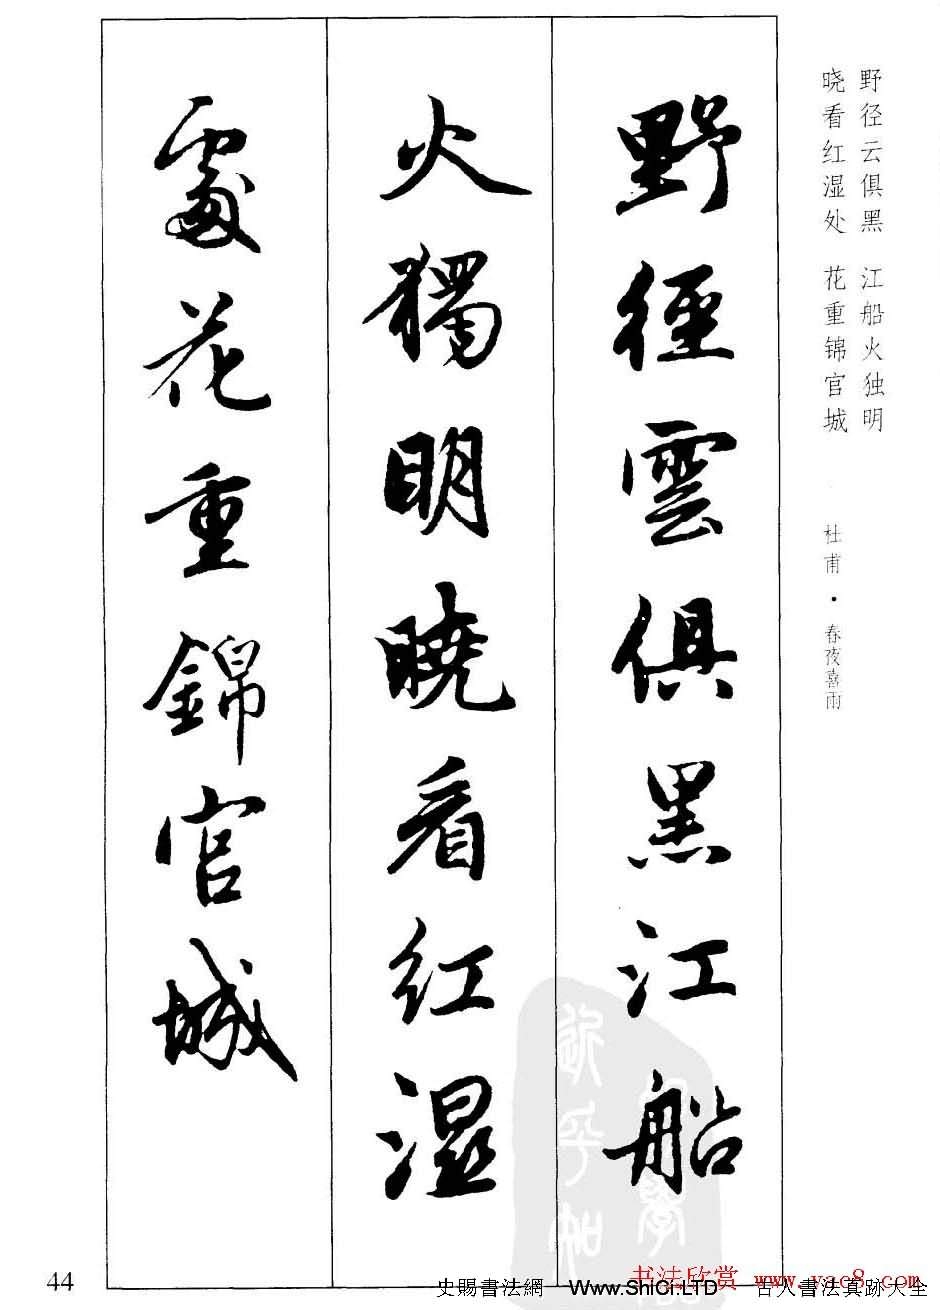 野径云俱黑 江船火独明
晓看红湿处 花重锦官城
杜甫·春夜喜雨
野徑雲俱黑江船
火獨明曉看紅濕
處花重錦官城
44
史賜書法網 Www.ShiCi.LTD 古人書法真跡大全
书法欣赏 www.yac8.com